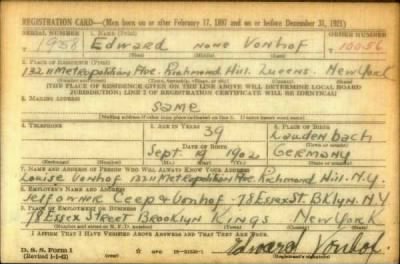 REGISTRATION CARD—(Men born on or after February 17, 1897 and on or before December 31, 1921)
SERIAL NUMBER 1. NAME (Print) ORDER NUMBER
T 1958 Edward none Vonhof 10056
(First) (Middle) (Last)
2. PLACE OF RESIDENCE (Print)
13211 Metropolitan Ave. Richmond Hill. Queens. New York
(Number and street) (Town, township, village, or city) (County) (State)
[THE PLACE OF RESIDENCE GIVEN ON THE LINE ABOVE WILL DETERMINE LOCAL BOARD
JURISDICTION; LINE 2 OF REGISTRATION CERTIFICATE WILL BE IDENTICAL]
3. MAILING ADDRESS
Same
[Mailing address if other than place indicated on line 2. If same insert word same]
4. TELEPHONE 5. AGE IN YEARS 6. PLACE OF BIRTH
39 Laudenbach
DATE OF BIRTH (Town or county)
Sept. 19 1902 Germany
(Exchange) (Number) (Mo.) (Day) (Yr.) (State or country)
7. NAME AND ADDRESS OF PERSON WHO WILL ALWAYS KNOW YOUR ADDRESS
Louise Vonhof 13211 Metropolitan Ave. Richmond Hill. N.Y.
8. EMPLOYER'S NAME AND ADDRESS
Self owner Ceep & Vonhof - 78 Essex St. Bklyn. N.Y
9. PLACE OF EMPLOYMENT OR BUSINESS
78 Essex Street Brooklyn Kings New York
(Number and street or R. F. D. number) (Town) (County) (State)
I AFFIRM THAT I HAVE VERIFIED ABOVE ANSWERS AND THAT THEY ARE TRUE.
D. S. S. Form 1
(Revised 1-1-42) (over) Edward Vonhof